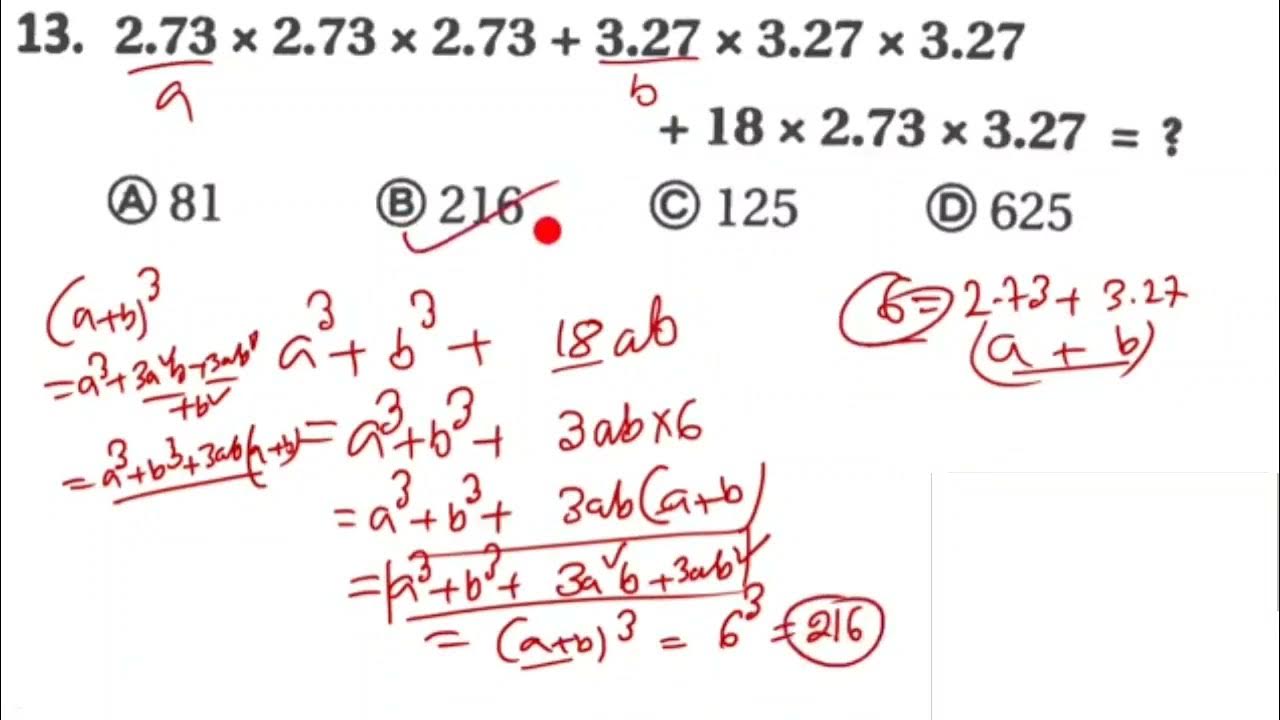 13. 2.73 × 2.73 × 2.73 + 3.27 × 3.27 × 3.27
a b
+ 18 × 2.73 × 3.27 = ?
Ⓐ 81 Ⓑ 216 Ⓒ 125 Ⓓ 625
(a+b)³
= a³ + 3a²b + 3ab²
+ b³
= a³ + b³ + 3ab(a+b)
a³ + b³ + 18ab
= a³ + b³ + 3ab × 6
= a³ + b³ + 3ab(a+b)
= a³ + b³ + 3a²b + 3ab²
= (a+b)³ = 6³ = 216
6 = 2.73 + 3.27
(a + b)